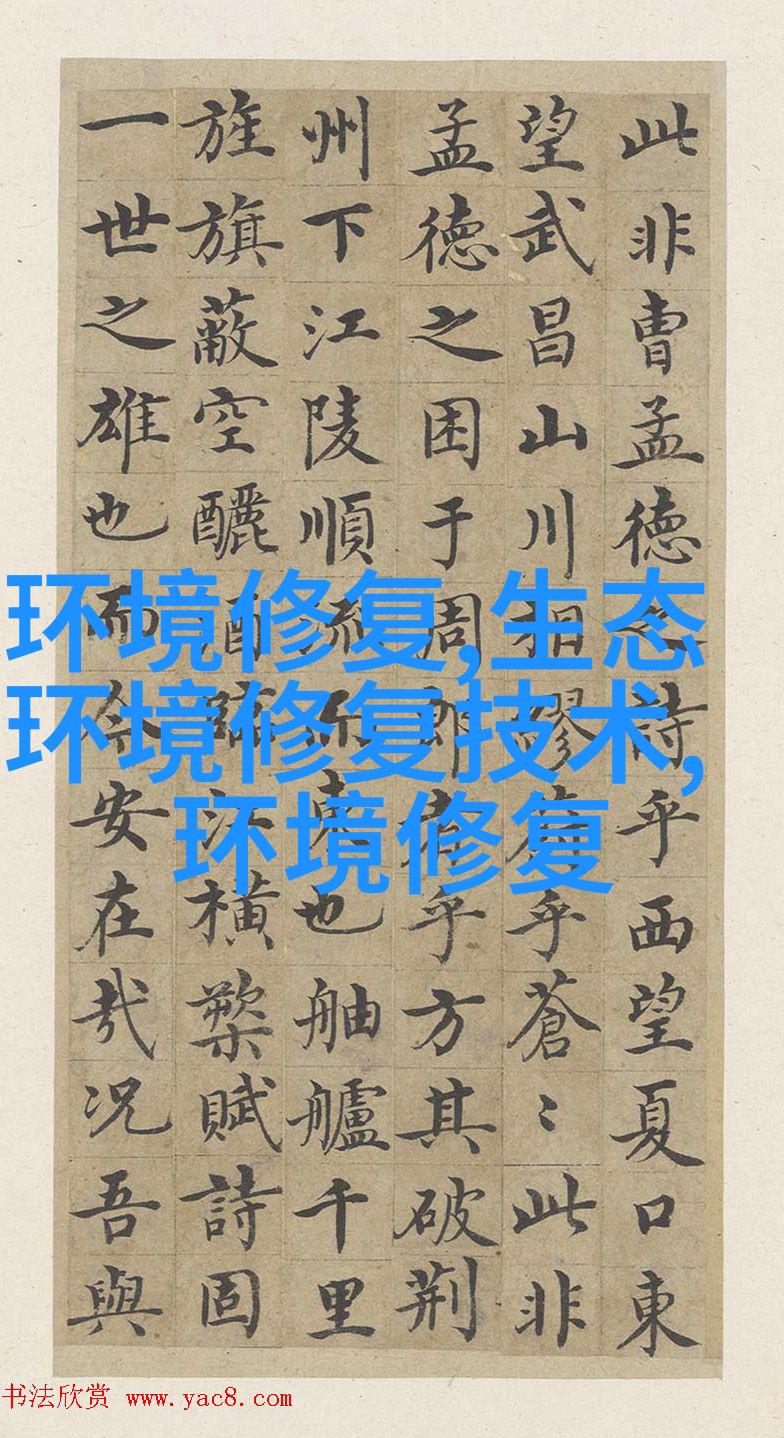 此非曹孟德之詩乎西望夏口東
望武昌山川相繆乎蒼〻此非
孟德之困于周郎者乎方其破荆
州下江陵順流東也舳艫千里
旌旗蔽空釃酒臨江横槊賦詩固
一世之雄也而今安在哉况吾與
环境修复,生态
环境修复技术,
环境修复
书法欣赏 www.yac8.com